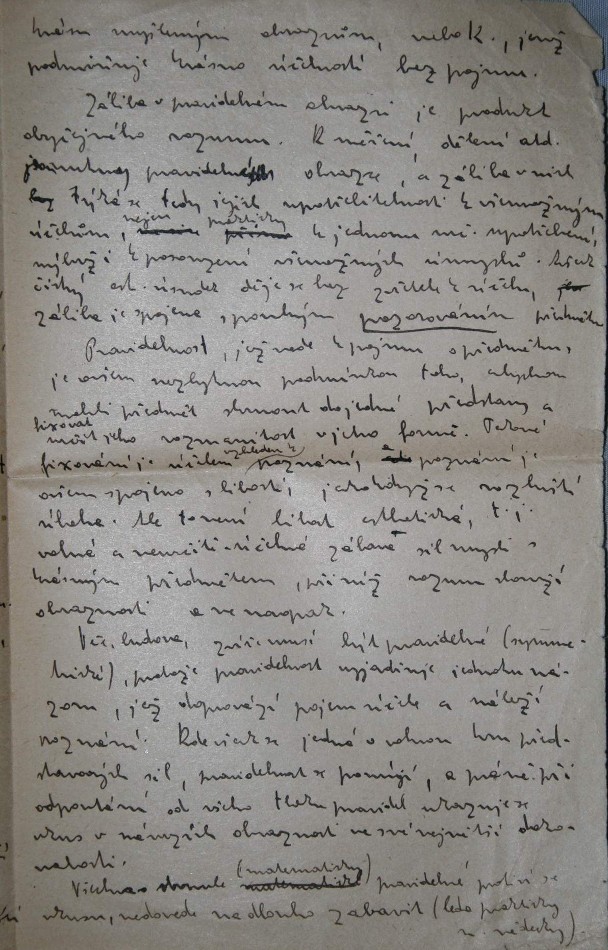 krásu myšleným obrazům, nebo K., jenž
podmiňuje krásno účelností bez pojmu.
Záliba v pravidelném obrazci je produkt
obyčejného rozumu. K měření, dělení atd.
pravidelných obrazce, a záliba v nich
týká se tedy jejich upotřebitelnosti k všemožným
účelům, nejen prakticky k jednomu urč. upotřebení,
nýbrž i k posouzení všemožných úmyslů.
čistý est. úsudek děje se bez zřetele k účelu,
záliba je spojena s pouhým pozorováním předmětu
Pravidelnost, jež vede k pojmu o předmětu,
je ovšem nezbytnou podmínkou toho, abychom
mohli předmět shrnout do jedné představy a
fixovat
určit jeho rozmanitost v jeho formě. Takové
fixování je účelem vzhledem k poznání, a poznání je
ovšem spojeno s libostí, jako když se rozluští
úloha. Ale to není libost esthetická, t. j.
volná a neurčitě-účelná zábava sil mysli s
krásným předmětem, při níž rozum slouží
obraznosti a ne naopak.
Věc, budova, zvíře musí být pravidelné (symme-
trické), protože pravidelnost vyjadřuje jednotu ná-
zoru, jež doprovází pojem účele a náleží
poznání. Kde však se jedná o volnou hru před-
stavových sil, pravidelnost se pomíjí, a právě při
odpoutání od všeho tlaku pravidel ukazuje se
vkus v návrzích obraznosti ve své největší doko-
nalosti.
Všechno strnule (matematicky) pravidelné protiví se
vkusu, nedovede na dlouho zabavit (leda prakticky
n. vědecky)